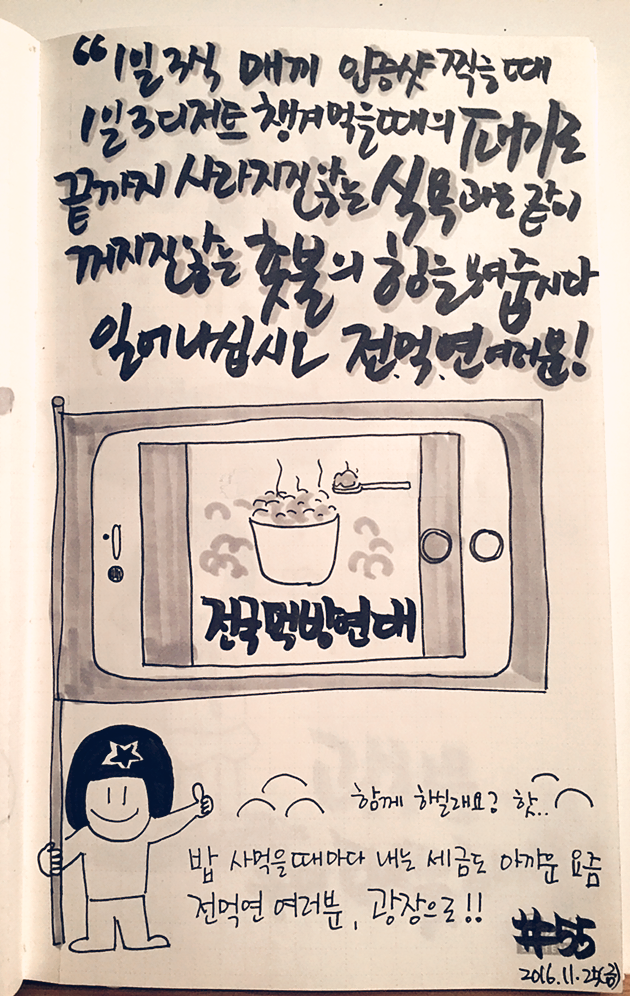 “1일 3식 매끼 인증샷 찍을때
1일 3디저트 챙겨먹을때의 패기로
끝까지 사라지질않는 식욕과는 같이
꺼지질않는 촛불의 힘을 보여줍시다
일어나십시오 전.먹.연 여러분!
전국먹방연대
함께 하실래요? 핫..
밥 사먹을때마다 내는 세금도 아까운 요즘
전먹연 여러분, 광장으로!!
#55
2016.11.25(금)